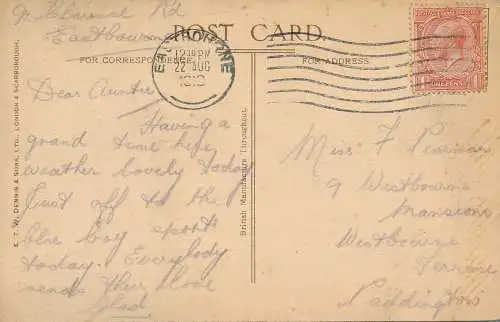 Rd
Eastbourne
POST CARD.
FOR CORRESPONDENCE
FOR ADDRESS.
EASTBOURNE
22 AUG
Dear Auntie
Having a
grand time here
weather lovely today
Just off to the
blue boy sports
today. Everybody
sends their love
E. T. W. DENNIS & SONS, LTD., LONDON & SCARBOROUGH.
British Manufacture Throughout.
ONE PENNY
Miss F
9 Westbourne
Mansions
Westbourne
Terrace
Paddington